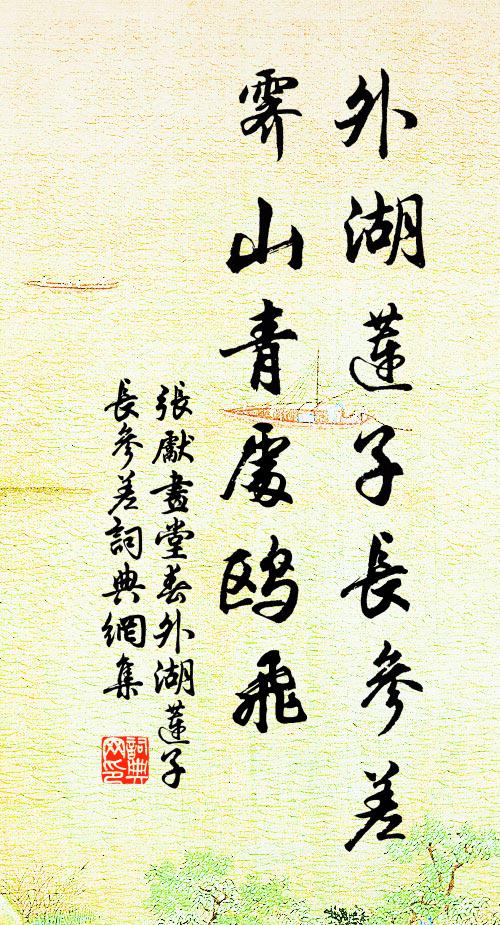 外湖蓮子長參差
霽山青處鸥飛
張獻畫堂春外湖蓮子
長參差詞典網集